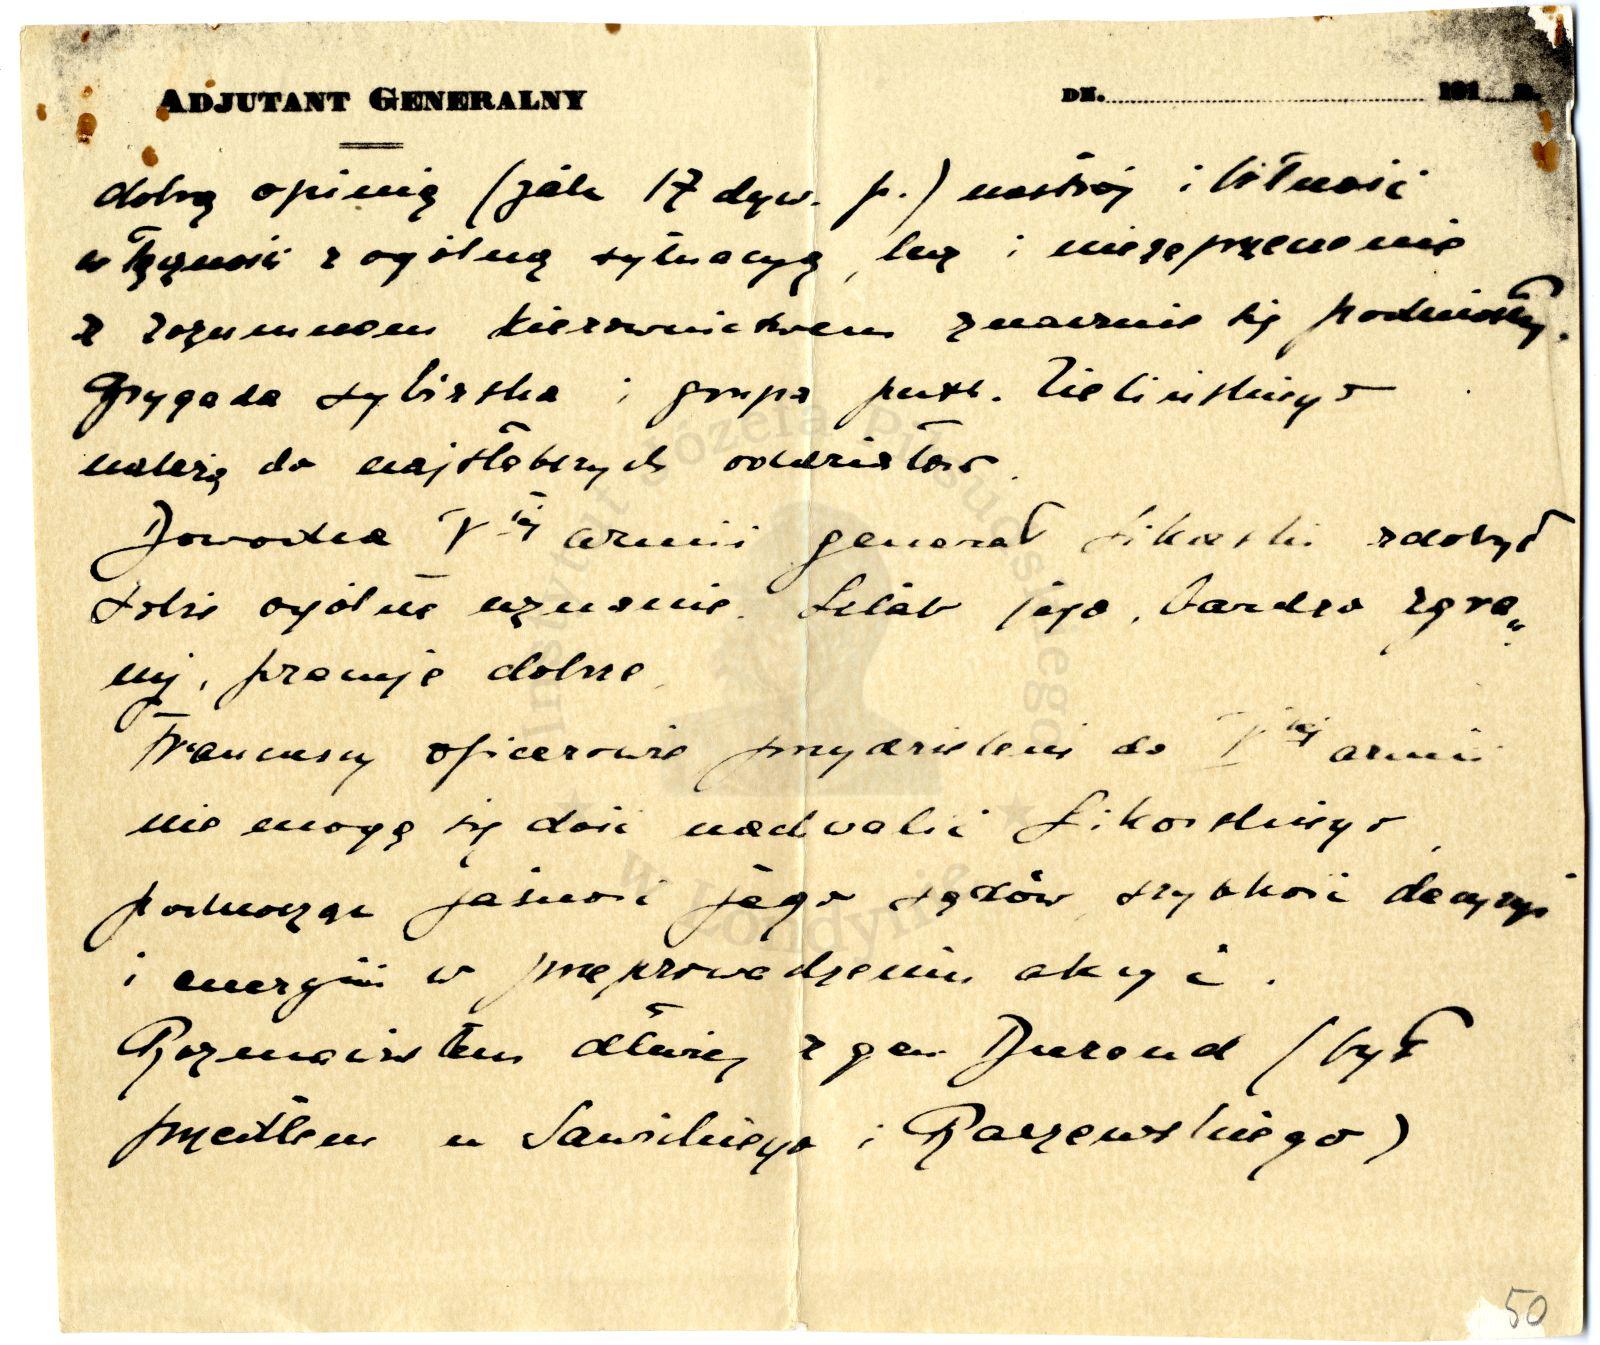 ADJUTANT GENERALNY
DN. 191 R.
dobrą opinią (jak 17 dyw. p.) nastrój i bitność
w łączności z ogólną sytuacyą, lecz i niezaprzeczenie
z rozumnem kierownictwem znacznie się podniosły.
Brygada sybirska i grupa pułk. Zielińskiego
należą do najsłabszych oddziałów.
Dowódca V tej armii generał Sikorski zdobył
sobie ogólne uznanie. Sztab jego, bardzo zgra„
ny, pracuje dobrze.
Francuscy oficerowie przydzieleni do V tej armii
nie mogą się dość nachwalić Sikorskiego,
podnosząc jasność jego sądów, szybkość decyzyi
i energii w przeprowadzeniu akcyi.
Rozmawiałem dłużej z gen. Durand (był
przedtem u Sawickiego i Raszewskiego)
50
Instytut Józefa Piłsudskiego
w Londynie